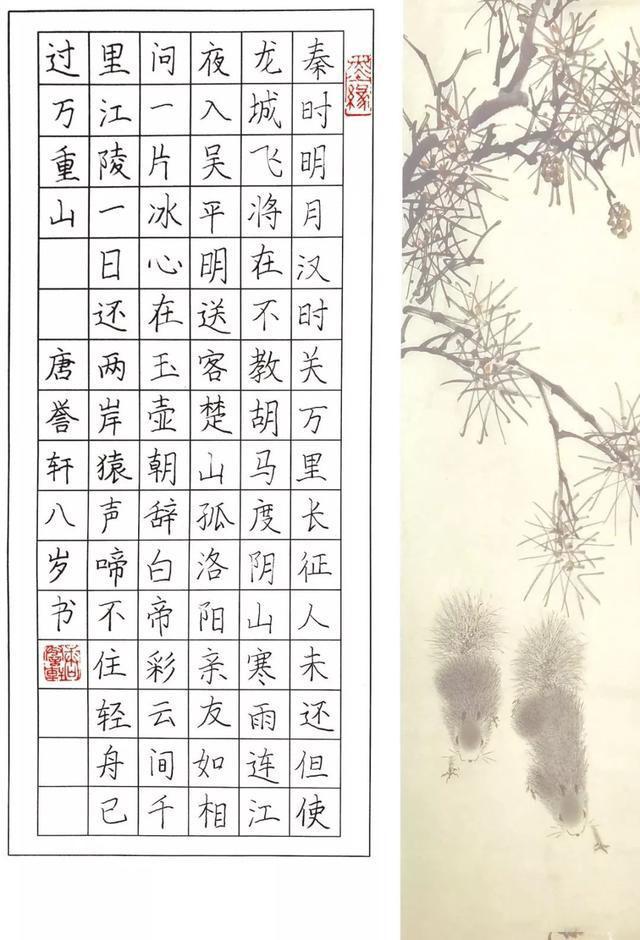 秦时明月汉时关万里长征人未还但使
龙城飞将在不教胡马度阴山寒雨连江
夜入吴平明送客楚山孤洛阳亲友如相
问一片冰心在玉壶朝辞白帝彩云间千
里江陵一日还两岸猿声啼不住轻舟已
过万重山 唐誉轩八岁书